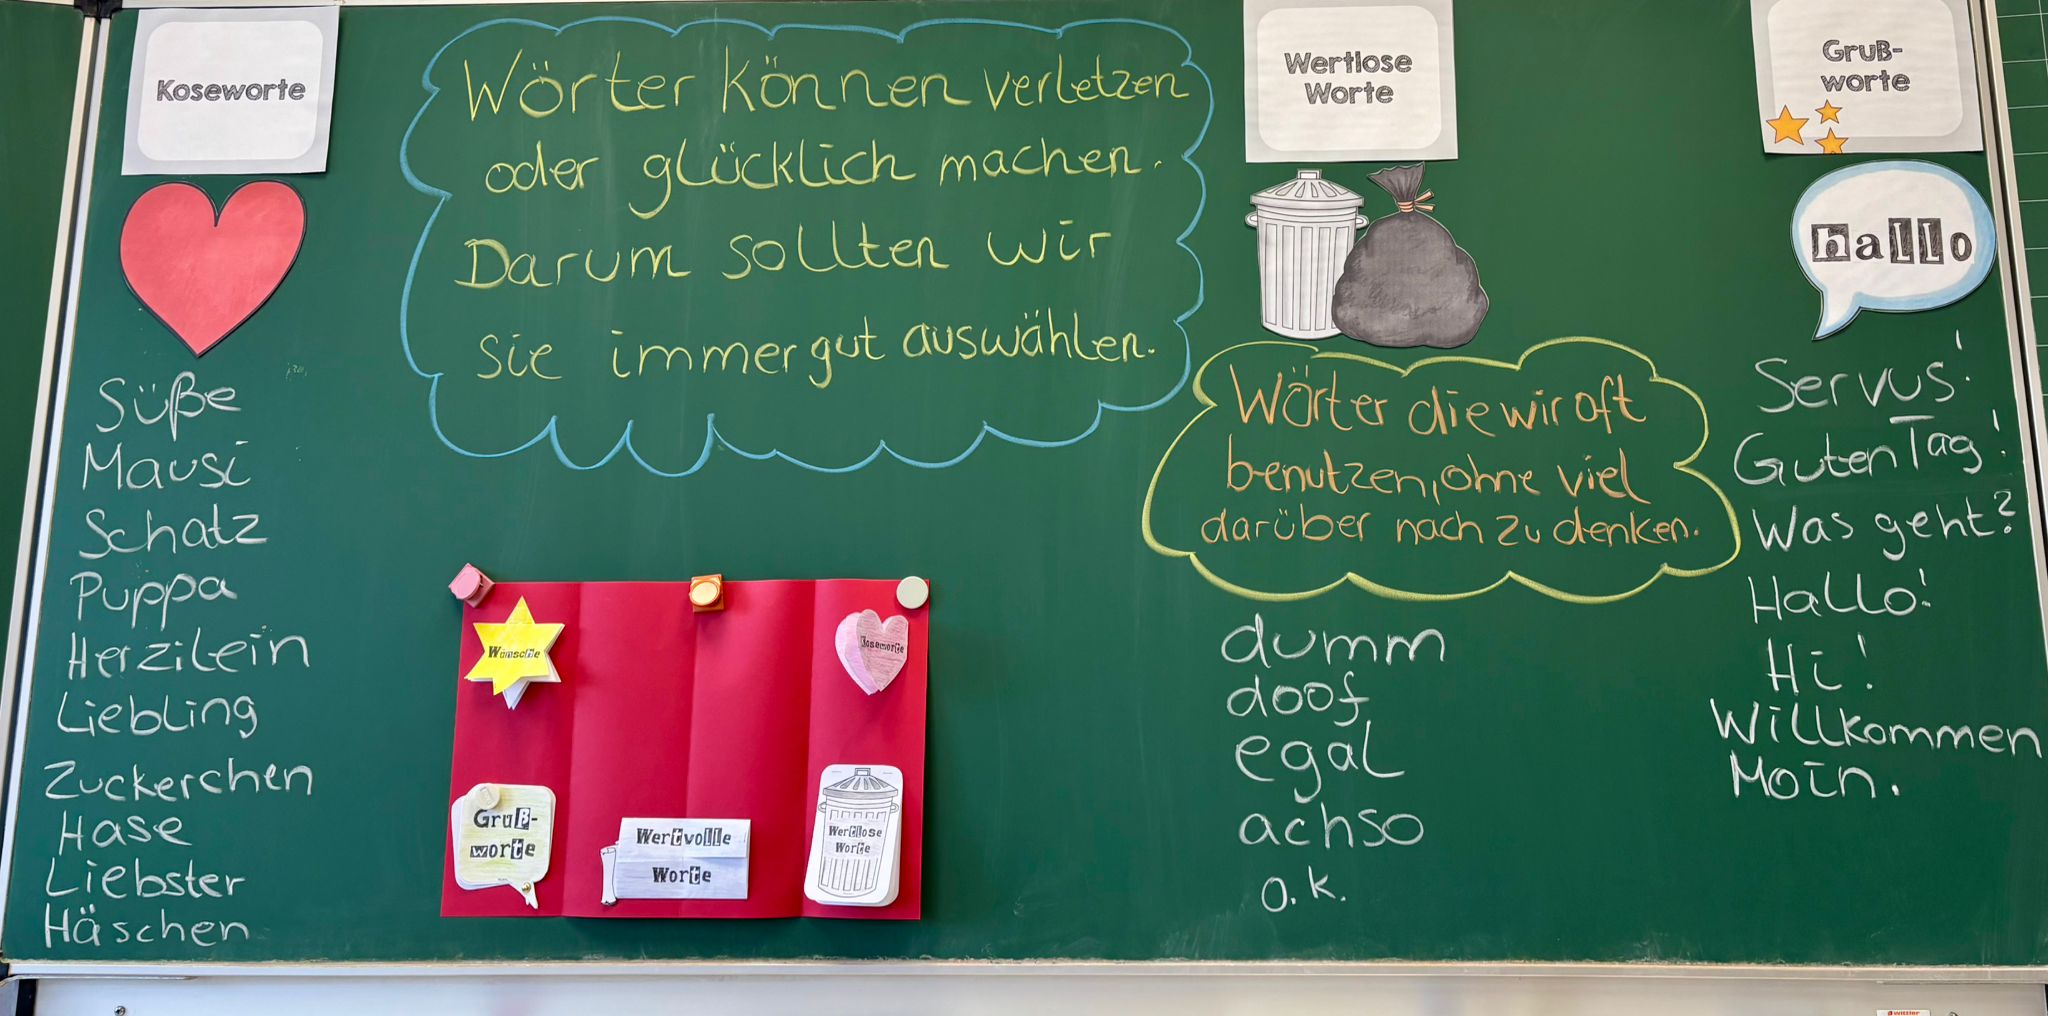 Koseworte
Süße
Mausi
Schatz
Puppa
Herzilein
Liebling
Zuckerchen
Hase
Liebster
Häschen
Wörter können verletzen
oder glücklich machen.
Darum sollten wir
sie immer gut auswählen.
Wünsche
Koseworte
Gruß-
worte
Wertvolle
Worte
Wertlose
Worte
Wertlose
Worte
Wörter die wir oft
benutzen, ohne viel
darüber nach zu denken.
dumm
doof
egal
achso
o.k.
Gruß-
worte
hallo
Servus!
Guten Tag!
Was geht?
Hallo!
Hi!
Willkommen
Moin.
wittler